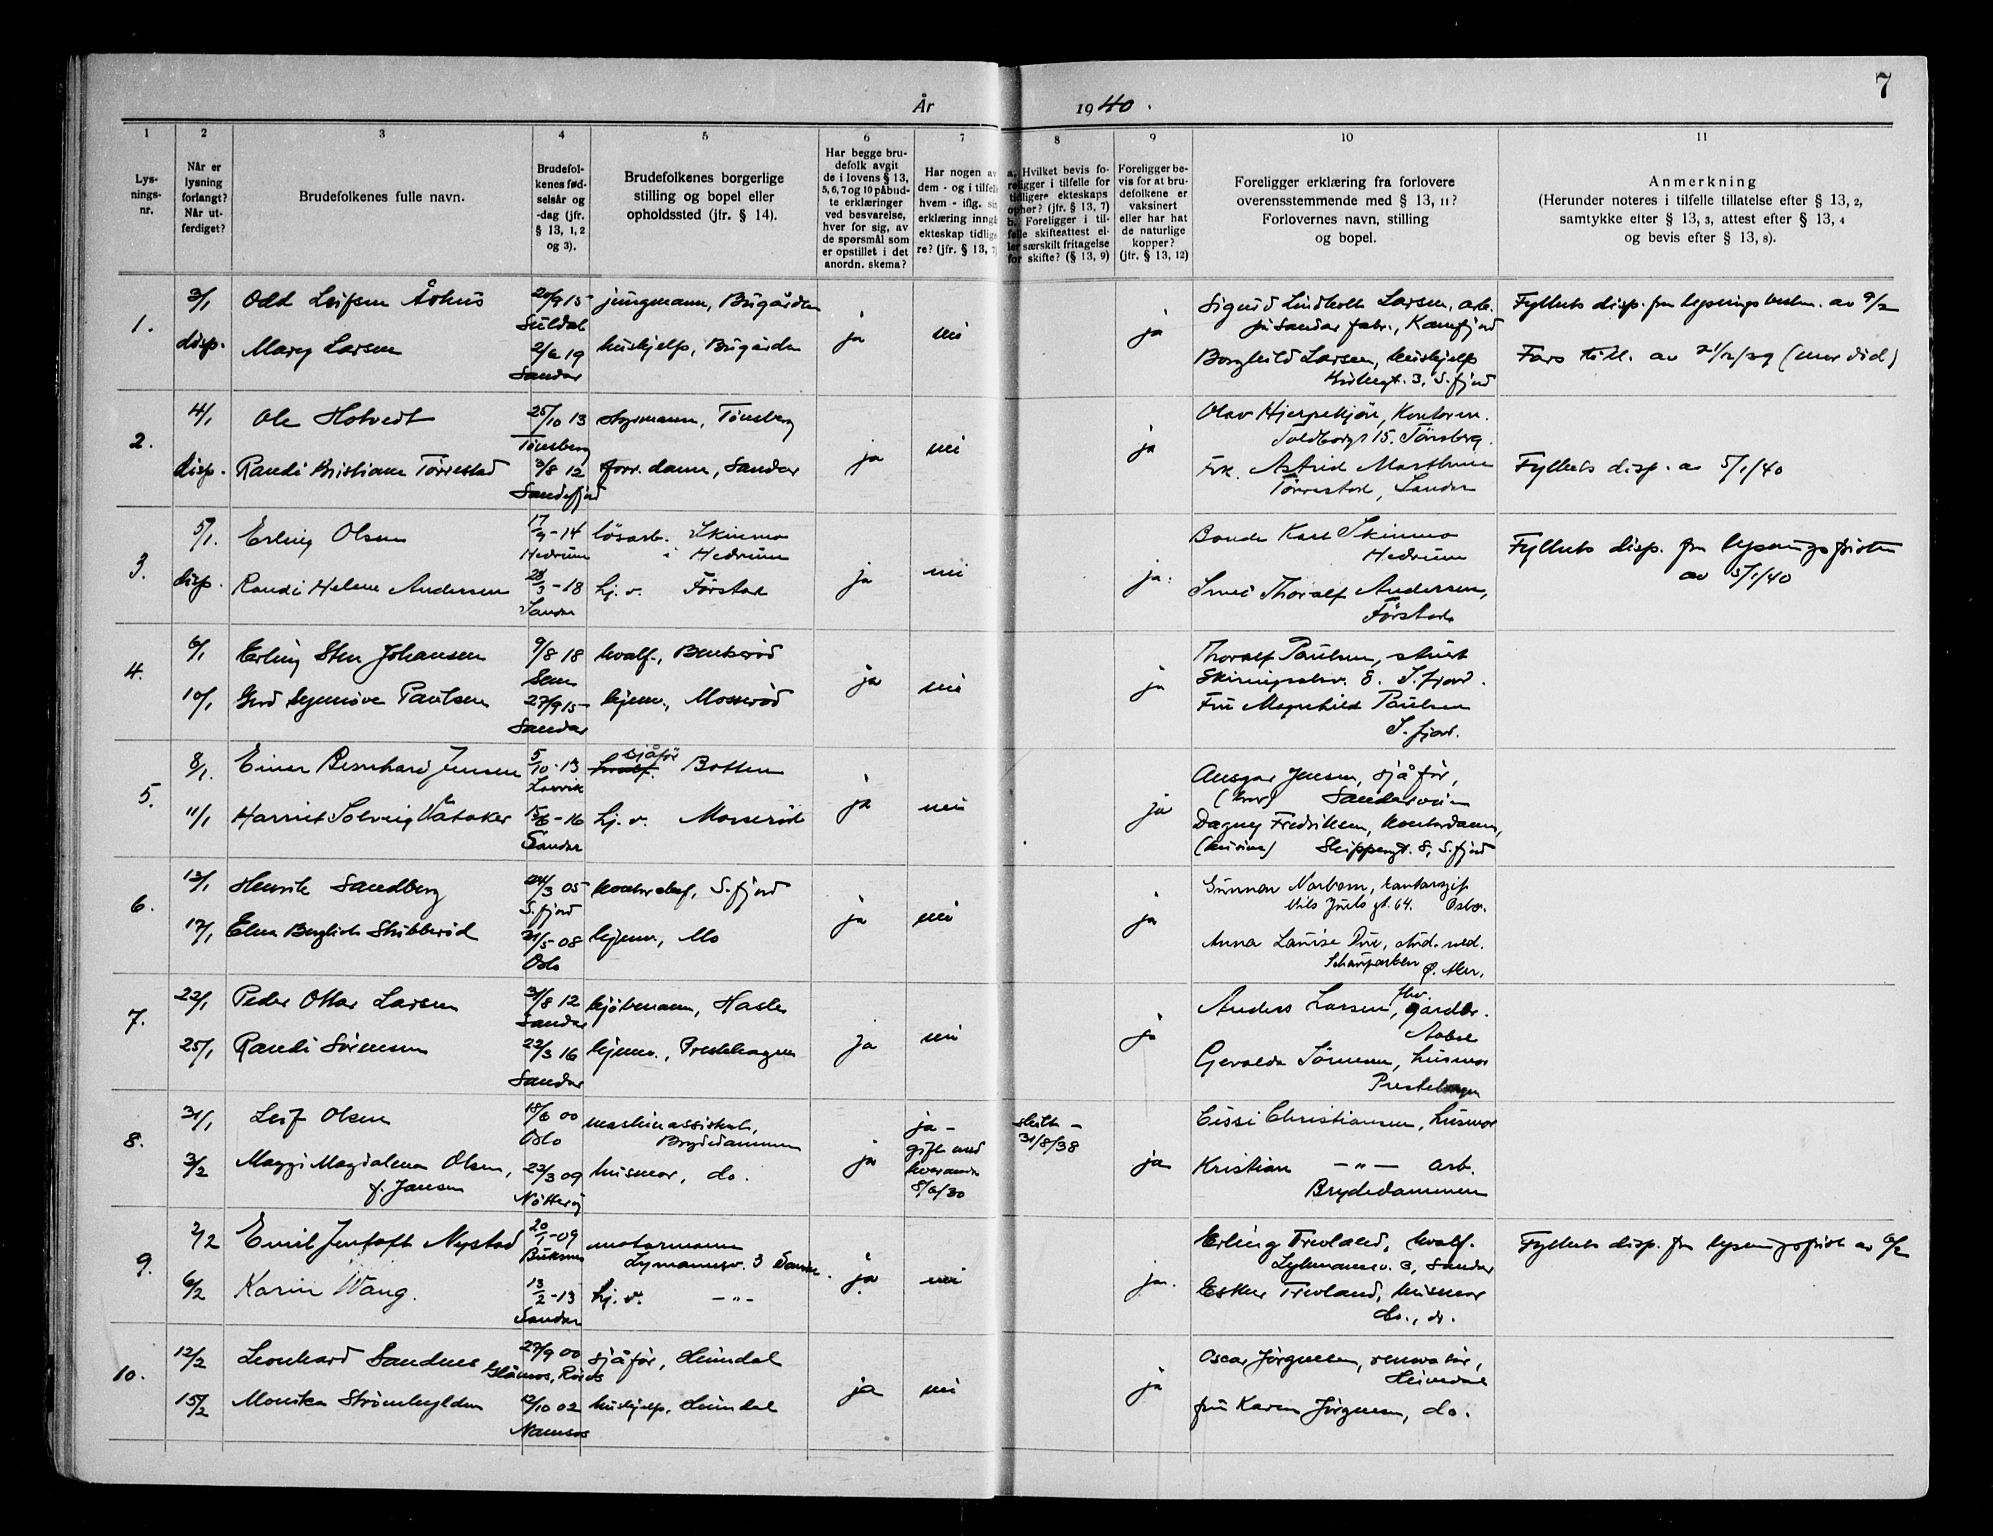 7
År 1940.
1 2 3 4 5 6 7 8 9 10 11
Lysningsnr.
Når er lysning forlangt? Når utferdiget?
Brudefolkenes fulle navn.
Brudefolkenes fødselsår og -dag (jfr. § 13, 1, 2 og 3).
Brudefolkenes borgerlige stilling og bopel eller opholdssted (jfr. § 14).
Har begge brudefolk avgit de i lovens § 13, 5, 6, 7 og 10 påbudte erklæringer ved besvarelse, hver for sig, av de spørsmål som er opstillet i det anordn. skema?
Har nogen av dem - og i tilfelle hvem - iflg. sin erklæring inngått ekteskap tidligere? (jfr. § 13, 7)
a. Hvilket bevis foreligger i tilfelle for tidligere ekteskaps ophør? (jfr. § 13, 7) b. Foreligger i tilfelle skifteattest eller særskilt fritagelse for skifte? (§ 13, 9)
Foreligger bevis for at brudefolkene er vaksinert eller har hat de naturlige kopper? (jfr. § 13, 12)
Foreligger erklæring fra forlovere overensstemmende med § 13, 11? Forlovernes navn, stilling og bopel.
Anmerkning (Herunder noteres i tilfelle tillatelse efter § 13, 2, samtykke efter § 13, 3, attest efter § 13, 4 og bevis efter § 13, 8).
1. 3/1 Odd Leifsen Århus 20/9 15 Suldal jungmann, Bugården
disp. Mary Larsen 2/6 19 Sandar hushjelp, Bugården ja nei ja
Sigurd Lindholt Larsen, arb. på Sandar fabr., Kamfjord
Borghild Larsen, hushjelp 3, S.fjord
Fylkets disp. fra av 9/2
Fars till. av (mor död)
2. 4/1 Ole Hotvedt 25/10 13 Tönsberg styrmann, Tönsberg
disp. Randi Kristiane Törrestad 3/8 12 Sandefjord forr.dame, Sandar ja nei ja
Olav Hjerpekjön, Kontorm. Toldbodgt 15. Tönsberg.
Frk. Astrid Törrestad, Sandar
Fylkets disp. av 5/1/40
3. 5/1. Erling Olsen 17/9-14 Hedrum lösarb. Skinmo i Hedrum
disp. Randi Helene Andersen 28/3-18 Sandar hj. v. Förstad ja nei ja.
Bonde Karl Skinmo Hedrum
Smed Thoralf Andersen, Förstad
Fylkets disp. fra lysningsfristen av 5/1/40
4. 6/1 Erling Sten Johansen 9/8 18 Sem hvalf., Bentseröd
10/1 Gerd Synnöve Paulsen 27/9 15 Sandar hjemv., Mosseröd ja nei ja
Thoralf Paulsen, 8. S.fjord.
Fru Magnhild Paulsen S.fjord.
5. 8/1. Einar Bernhard Jensen 5/10-13 Larvik hvalf. sjåför Botten
11/1 Harriet Solveig Våtaker 15/6-16 Sandar hj. v. Mosseröd ja nei ja
Ansgar Jensen, sjåför, (bror) Sandarveien
Dagny Fredriksen, kontordame, (kusine) Skippergt. 8, S.fjord
6. 13/1 Henrik Sandberg 24/3 05 S.fjord kontorchef, S.fjord
17/1 Elna Bergliot Skibberöd 31/5 08 Oslo hjemv., Mo ja nei ja
Gunnar Norbom, Nils Juels gt. 64. Oslo.
Anna Louise Due, stud. med.
7. 22/1 Peder Ottar Larsen 31/8 12 Sandar kjöbmann, Hasle
25/1 Randi Sörensen 22/3 16 Sandar hjemv., Prestehagen ja nei ja
Anders Larsen, fhv. gårdbr.
Gevalda Sörensen, husmor Prestehagen
8. 31/1 Leif Olsen 18/6 00 Oslo maskinassistent, Brydedammen
3/2 Maggi Magdalena Olsen, f. Jansen 23/3 09 Nötteröy husmor, do. ja
ja - gift med hverandre 8/6/30
skilt - 31/8/38 ja
Cissi Christiansen, husmor
Kristian -"- arb. Brydedammen
9. 2/2 Emil Jentoft Nystad 20/1-09 Buksnes motormann Lymannsv. 3 Sandar.
6/2 Karin Wang. 13/2-13 Sandar hj. v. -"- ja nei ja.
Erling Trevland, hvalf. Lymannsv. 3, Sandar
Esther Trevland, husmor do., do.
Fylkets disp. fra lysningsfrist av 6/2
10. 12/2 Leonhard Sandnes 27/9 00 Glåmos, Röros sjåför, Heimdal
15/2 Monika Strömhylden 12/10 02 Namsos hushjelp, Heimdal ja nei ja
Oscar Jörgensen, Heimdal
fru Karen Jörgensen, do.